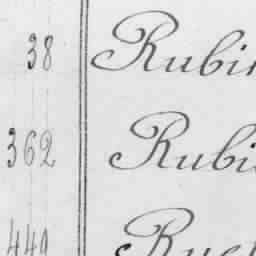 38 Rubin
362 Rubi
449 Ruef